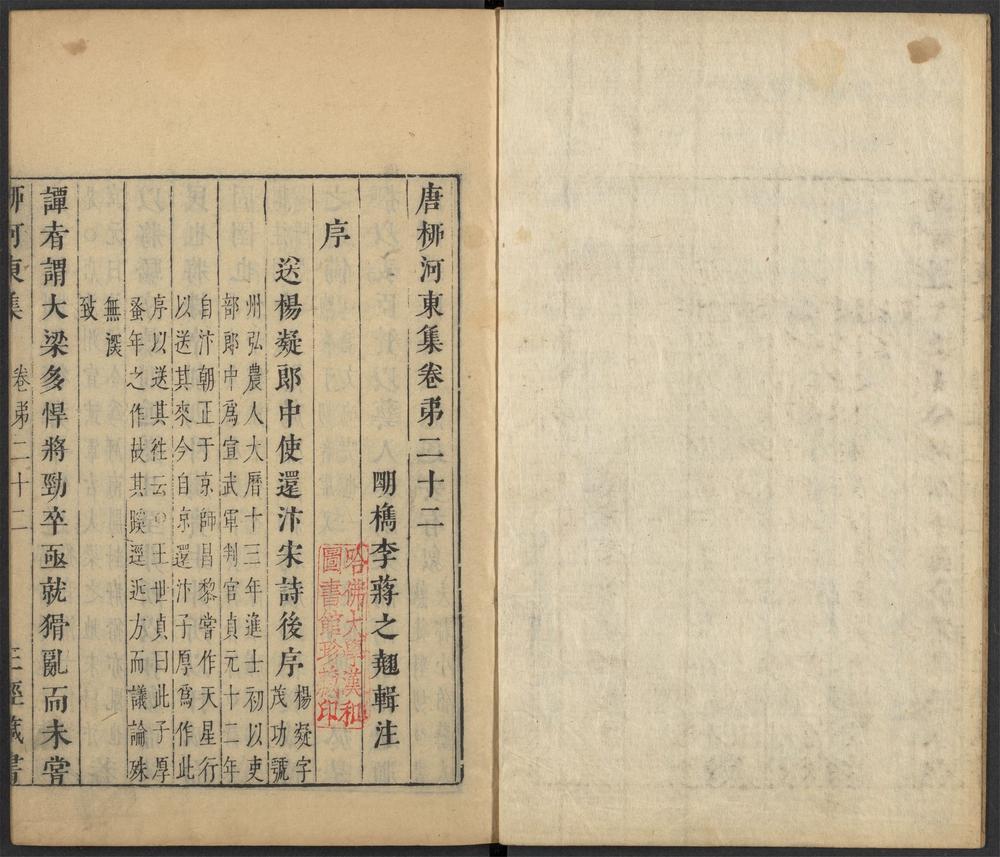 唐柳河東集卷第二十二
明檇李蔣之翹輯注
序
送楊凝郎中使還汴宋詩後序
楊凝字
茂功號
州弘農人大曆十三年進士初以吏
部郎中爲宣武軍判官貞元十二年
自汴朝正于京師昌黎嘗作天星行
以送其來今自京還汴子厚爲作此
序以送其徃云○王世貞曰此子厚
蚤年之作故其睽逕迟方而議論殊
無溪
致
譚者謂大梁多悍將勁卒亟就猾亂而未嘗
柳河東集
卷第二十二
三徑藏書
哈佛大學漢和
圖書館珍藏印